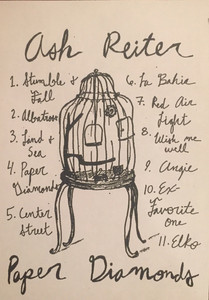 Ash Reiter
1. Stumble &
Fall
2. Albatross
3. Land &
Sea
4. Paper
Diamonds
5. Center
Street
6. La Bahia
7. Red Air
Light
8. Wish me
well
9. Angie
10. Ex-
Favorite
one
11. Elko
Paper Diamonds